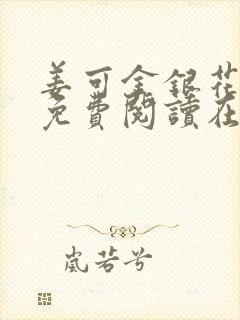 姜可金銀花
免費閱讀在
嵐若兮